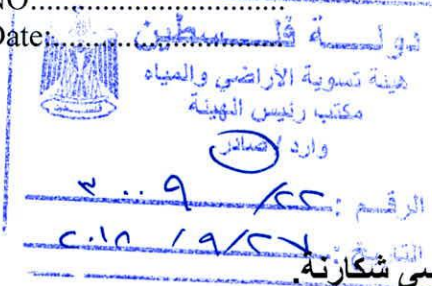 NO..............................
Date:..............................
دولة فلسطين
هيئة تسوية الأراضي والمياه
مكتب رئيس الهيئة
وارد / صادر
الرقم : ٢٢/ ٣٠٠٩
التاريخ : ٢٧/ ٩ / ٢٠١٨
شكارنة.